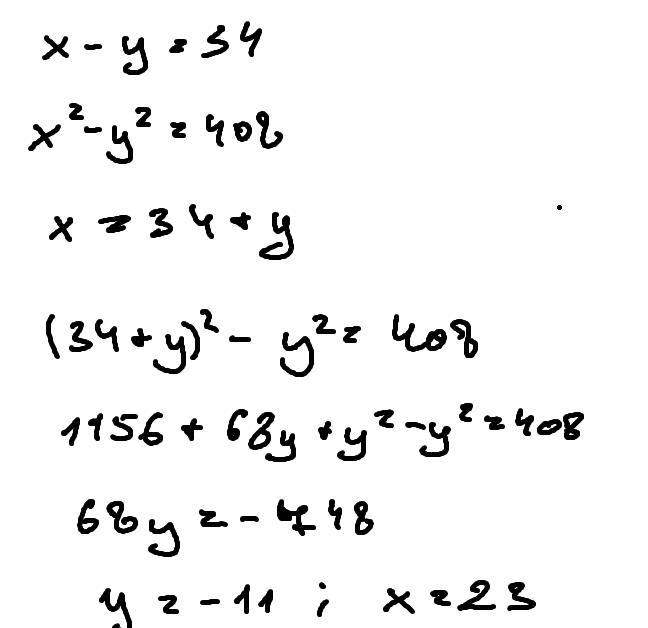 x - y = 34
x² - y² = 408
x = 34 + y
(34 + y)² - y² = 408
1156 + 68y + y² - y² = 408
68y = -748
y = -11 ; x = 23